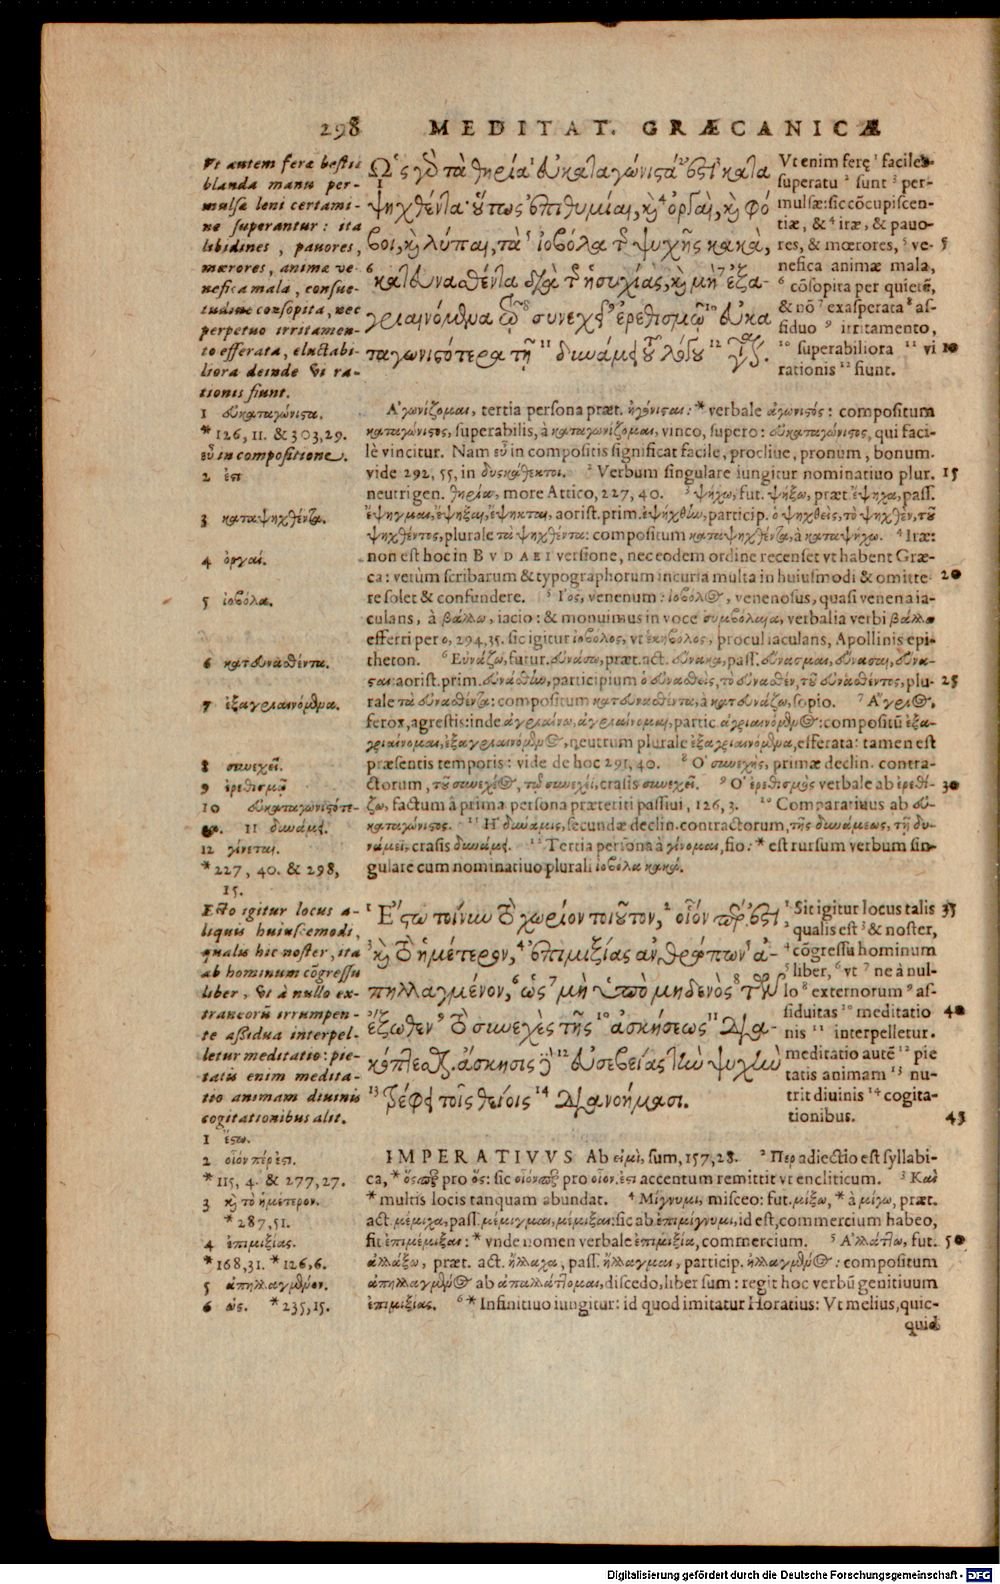 298 MEDITAT. GRÆCANICÆ
Vt autem feræ bestiæ
blanda manu per-
mulsæ leni certami-
ne superantur: ita
libidines, pauores,
mærores, animæ ve-
nefica mala, consue-
tudine consopita, nec
perpetuo irritamen-
to efferata, eluctabi-
liora deinde vi ra-
tionis fiunt.
Ὡς γὸ τὰ θηρία¹ εὐκαταγώνιστά² ἐστι³ κατα
ψηχθέντα· οὕτως ἐπιθυμίαι, κὶ⁴ ὀργαὶ, κὶ φό
βοι, κὶ λύπαι, τὰ⁵ ἰοβόλα τ῀ ψυχῆς κακὰ,
⁶κατευνασθέντα διὰ τ῀ ἡσυχίας, κὶ μὴ⁷ ἐξα-
γριαινόμενα τῷ⁸ συνεχεῖ⁹ ἐρεθισμῷ¹⁰ εὐκα
ταγωνιστότερα τῇ¹¹ δυνάμει τοῦ λόγου¹² γίνεται.
Vt enim ferę¹ faciles
superatu² sunt³ per-
mulsæ: sic cōcupiscen-
tiæ, &⁴ iræ, & pauo-
res, & mœrores,⁵ ve- 5
nefica animæ mala,
⁶ cōsopita per quietē,
& nō⁷ exasperata⁸ as-
siduo⁹ irritamento,
¹⁰ superabiliora¹¹ vi 10
rationis¹² fiunt.
1 εὐκαταγώνιστα.
*126, 11. & 303, 29.
εὖ in compositione.
2 ἐστ
3 καταψηχθέντα.
4 ὀργαί.
5 ἰοβόλα.
6 κατευνασθέντα.
7 ἐξαγριαινόμενα.
8 συνεχεῖ.
9 ἐρεθισμῷ
10 εὐκαταγωνιστότε-
ρα. 11 δυνάμει.
12 γίνεται.
*227, 40. & 298,
15.
Ἀγωνίζομαι, tertia persona præt. ἠγώνισται: * verbale ἀγωνιστός: compositum
καταγώνιστος, superabilis, à καταγωνίζομαι, vinco, supero: εὐκαταγώνιστος, qui faci-
lè vincitur. Nam εὖ in compositis significat facile, procliue, pronum, bonum.
vide 292, 55, in δυσκάθεκτοι. ² Verbum singulare iungitur nominatiuo plur. 15
neutri gen. θηρία, more Attico, 227, 40. ³ ψήχω, fut. ψήξω, præt. ἔψηχα, pass.
ἔψηγμαι, ἔψηξαι, ἔψηκται, aorist. prim. ἐψήχθην, particip. ὁ ψηχθεὶς, τὸ ψηχθὲν, τοῦ
ψηχθέντος, plurale τὰ ψηχθέντα: compositum καταψηχθέντα, à καταψήχω. ⁴ Iræ:
non est hoc in BVDAEI versione, nec eodem ordine recenset vt habent Græ-
ca: verùm scribarum & typographorum incuria multa in huiusmodi & omitte- 20
re solet & confundere. ⁵ Ἰὸς, venenum: ἰοβόλος, venenosus, quasi venena ia-
culans, à βάλλω, iacio: & monuimus in voce συμβόλαια, verbalia verbi βάλλω
efferri per ο, 294, 35. sic igitur ἰοβόλος, vt ἑκηβόλος, procul iaculans, Apollinis epi-
theton. ⁶ Εὐνάζω, futur. εὐνάσω, præt. act. εὔνακα, pass. εὔνασμαι, εὔνασαι, εὔνα-
σται: aorist. prim. εὐνάσθην, participium ὁ εὐνασθεὶς, τὸ εὐνασθὲν, τοῦ εὐνασθέντος, plu- 25
rale τὰ εὐνασθέντα: compositum κατευνασθέντα, à κατευνάζω, sopio. ⁷ Ἄγριος,
ferox, agrestis: inde ἀγριαίνω, ἀγριαίνομαι, partic. ἀγριαινόμενος: compositū ἐξα-
γριαίνομαι, ἐξαγριαινόμενος, neutrum plurale ἐξαγριαινόμενα, efferata: tamen est
præsentis temporis: vide de hoc 291, 40. ⁸ Ὁ συνεχὴς, primæ declin. contra-
ctorum, τοῦ συνεχέος, τῷ συνεχέϊ, crasis συνεχεῖ. ⁹ Ὁ ἐρεθισμὸς verbale ab ἐρεθί- 30
ζω, factum à prima persona præteriti passiui, 126, 3. ¹⁰ Comparatiuus ab εὐ-
καταγώνιστος. ¹¹ Ἡ δύναμις, secundæ declin. contractorum, τῆς δυνάμεως, τῇ δυ-
νάμεϊ, crasis δυνάμει. ¹² Tertia persona à γίνομαι, fio: * est rursum verbum sin-
gulare cum nominatiuo plurali ἰοβόλα κακά.
Esto igitur locus a-
liquis huiuscemodi,
qualis hic noster, ita
ab hominum cōgressu
liber, vt à nullo ex-
traneorū irrumpen-
te assidua interpel-
letur meditatio: pie-
tatis enim medita-
tio animam diuinis
cogitationibus alit.
¹ Ἔστω τοίνυν τὸ χωρίον τοιοῦτον,² οἷόν πέρ ἐστι
³κὶ τὸ ἡμέτερον,⁴ ἐπιμιξίας ἀνθρώπων⁵ ἀ-
πηλλαγμένον,⁶ ὡς⁷ μὴ ὑπὸ μηδενὸς⁸ τῶν
ἔξωθεν⁹ τὸ συνεχὲς τῆς¹⁰ ἀσκήσεως¹¹ δια-
κόπτεσθαι. ἄσκησις δὲ¹² εὐσεβείας τὴν ψυχὴν
¹³ τρέφει τοῖς θείοις¹⁴ διανοήμασι.
¹ Sit igitur locus talis 35
² qualis est³ & noster,
⁴ cōgressu hominum
⁵ liber,⁶ vt⁷ ne à nul-
lo⁸ externorum⁹ as-
siduitas¹⁰ meditatio 40
nis¹¹ interpelletur.
meditatio autē¹² pie
tatis animam¹³ nu-
trit diuinis¹⁴ cogita-
tionibus. 45
1 ἔστω.
2 οἷόν πέρ ἐστι.
*115, 4. & 277, 27.
3 κὶ τὸ ἡμέτερον.
*287, 51.
4 ἐπιμιξίας.
*168, 31. *126, 6.
5 ἀπηλλαγμένον.
6 ὡς. *235, 15.
IMPERATIVVS Ab εἰμὶ, sum, 157, 28. ² Περ adiectio est syllabi-
ca, * ὅσπερ pro ὅς: sic οἷόνπερ pro οἷον. ἐστι accentum remittit vt encliticum. ³ Καὶ
* multis locis tanquam abundat. ⁴ Μίγνυμι, misceo: fut. μίξω, * à μίγω, præt.
act. μέμιχα, pass. μέμιγμαι, μέμιξαι: sic ab ἐπιμίγνυμι, id est, commercium habeo,
fit ἐπιμέμιξαι: * vnde nomen verbale ἐπιμιξία, commercium. ⁵ Ἀλλάττω, fut. 50
ἀλλάξω, præt. act. ἤλλαχα, pass. ἤλλαγμαι, particip. ἠλλαγμένος: compositum
ἀπηλλαγμένος ab ἀπαλλάττομαι, discedo, liber sum: regit hoc verbū genitiuum
ἐπιμιξίας. ⁶ * Infinitiuo iungitur: id quod imitatur Horatius: Vt melius, quic-
quid
Digitalisierung gefördert durch die Deutsche Forschungsgemeinschaft - DFG